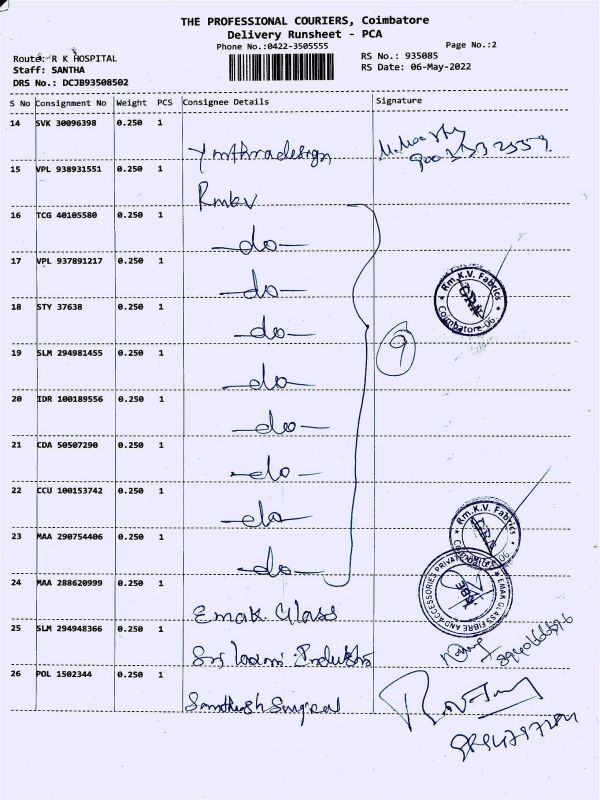 THE PROFESSIONAL COURIERS, Coimbatore
Delivery Runsheet - PCA
Phone No.:0422-3505555
Page No.:2
Route: R K HOSPITAL
RS No.: 935085
Staff: SANTHA
RS Date: 06-May-2022
DRS No.: DCJB93508502
S No Consignment No Weight PCS Consignee Details Signature
14 SVK 30096398 0.250 1
15 VPL 938931551 0.250 1 Rmkv
16 TCG 40105580 0.250 1 —do—
17 VPL 937891217 0.250 1 —do—
18 STY 37638 0.250 1 —do—
19 SLM 294981455 0.250 1 —do—
20 IDR 100189556 0.250 1 —do—
21 CDA 50507290 0.250 1 —do—
22 CCU 100153742 0.250 1 —do—
23 MAA 290754406 0.250 1 —do—
24 MAA 288620999 0.250 1 Emak Glass
25 SLM 294948366 0.250 1
26 POL 1502344 0.250 1
9
Rm.K.V. Fabrics
Coimbatore-06.
Rm.K.V. Fabrics
EMAK GLASS FIBRE AND ACCESSORIES PRIVATE